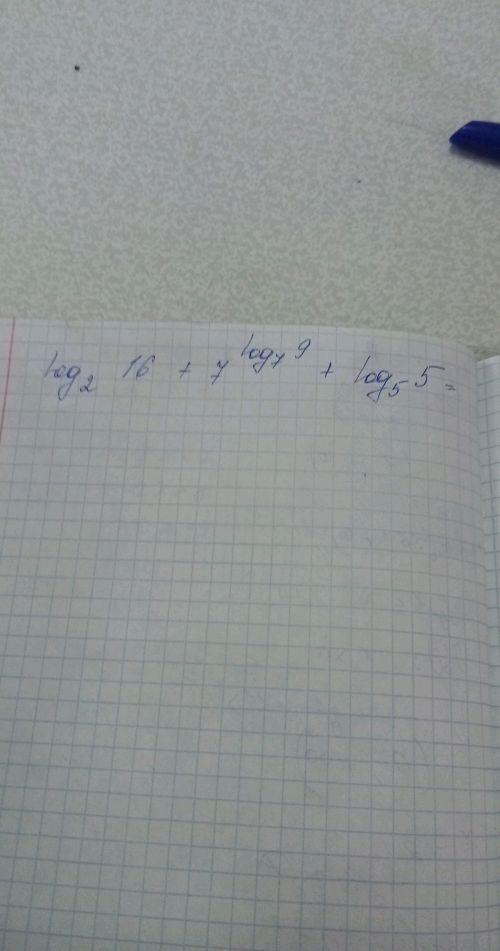 log₂ 16 + 7^log₇9 + log₅5 =